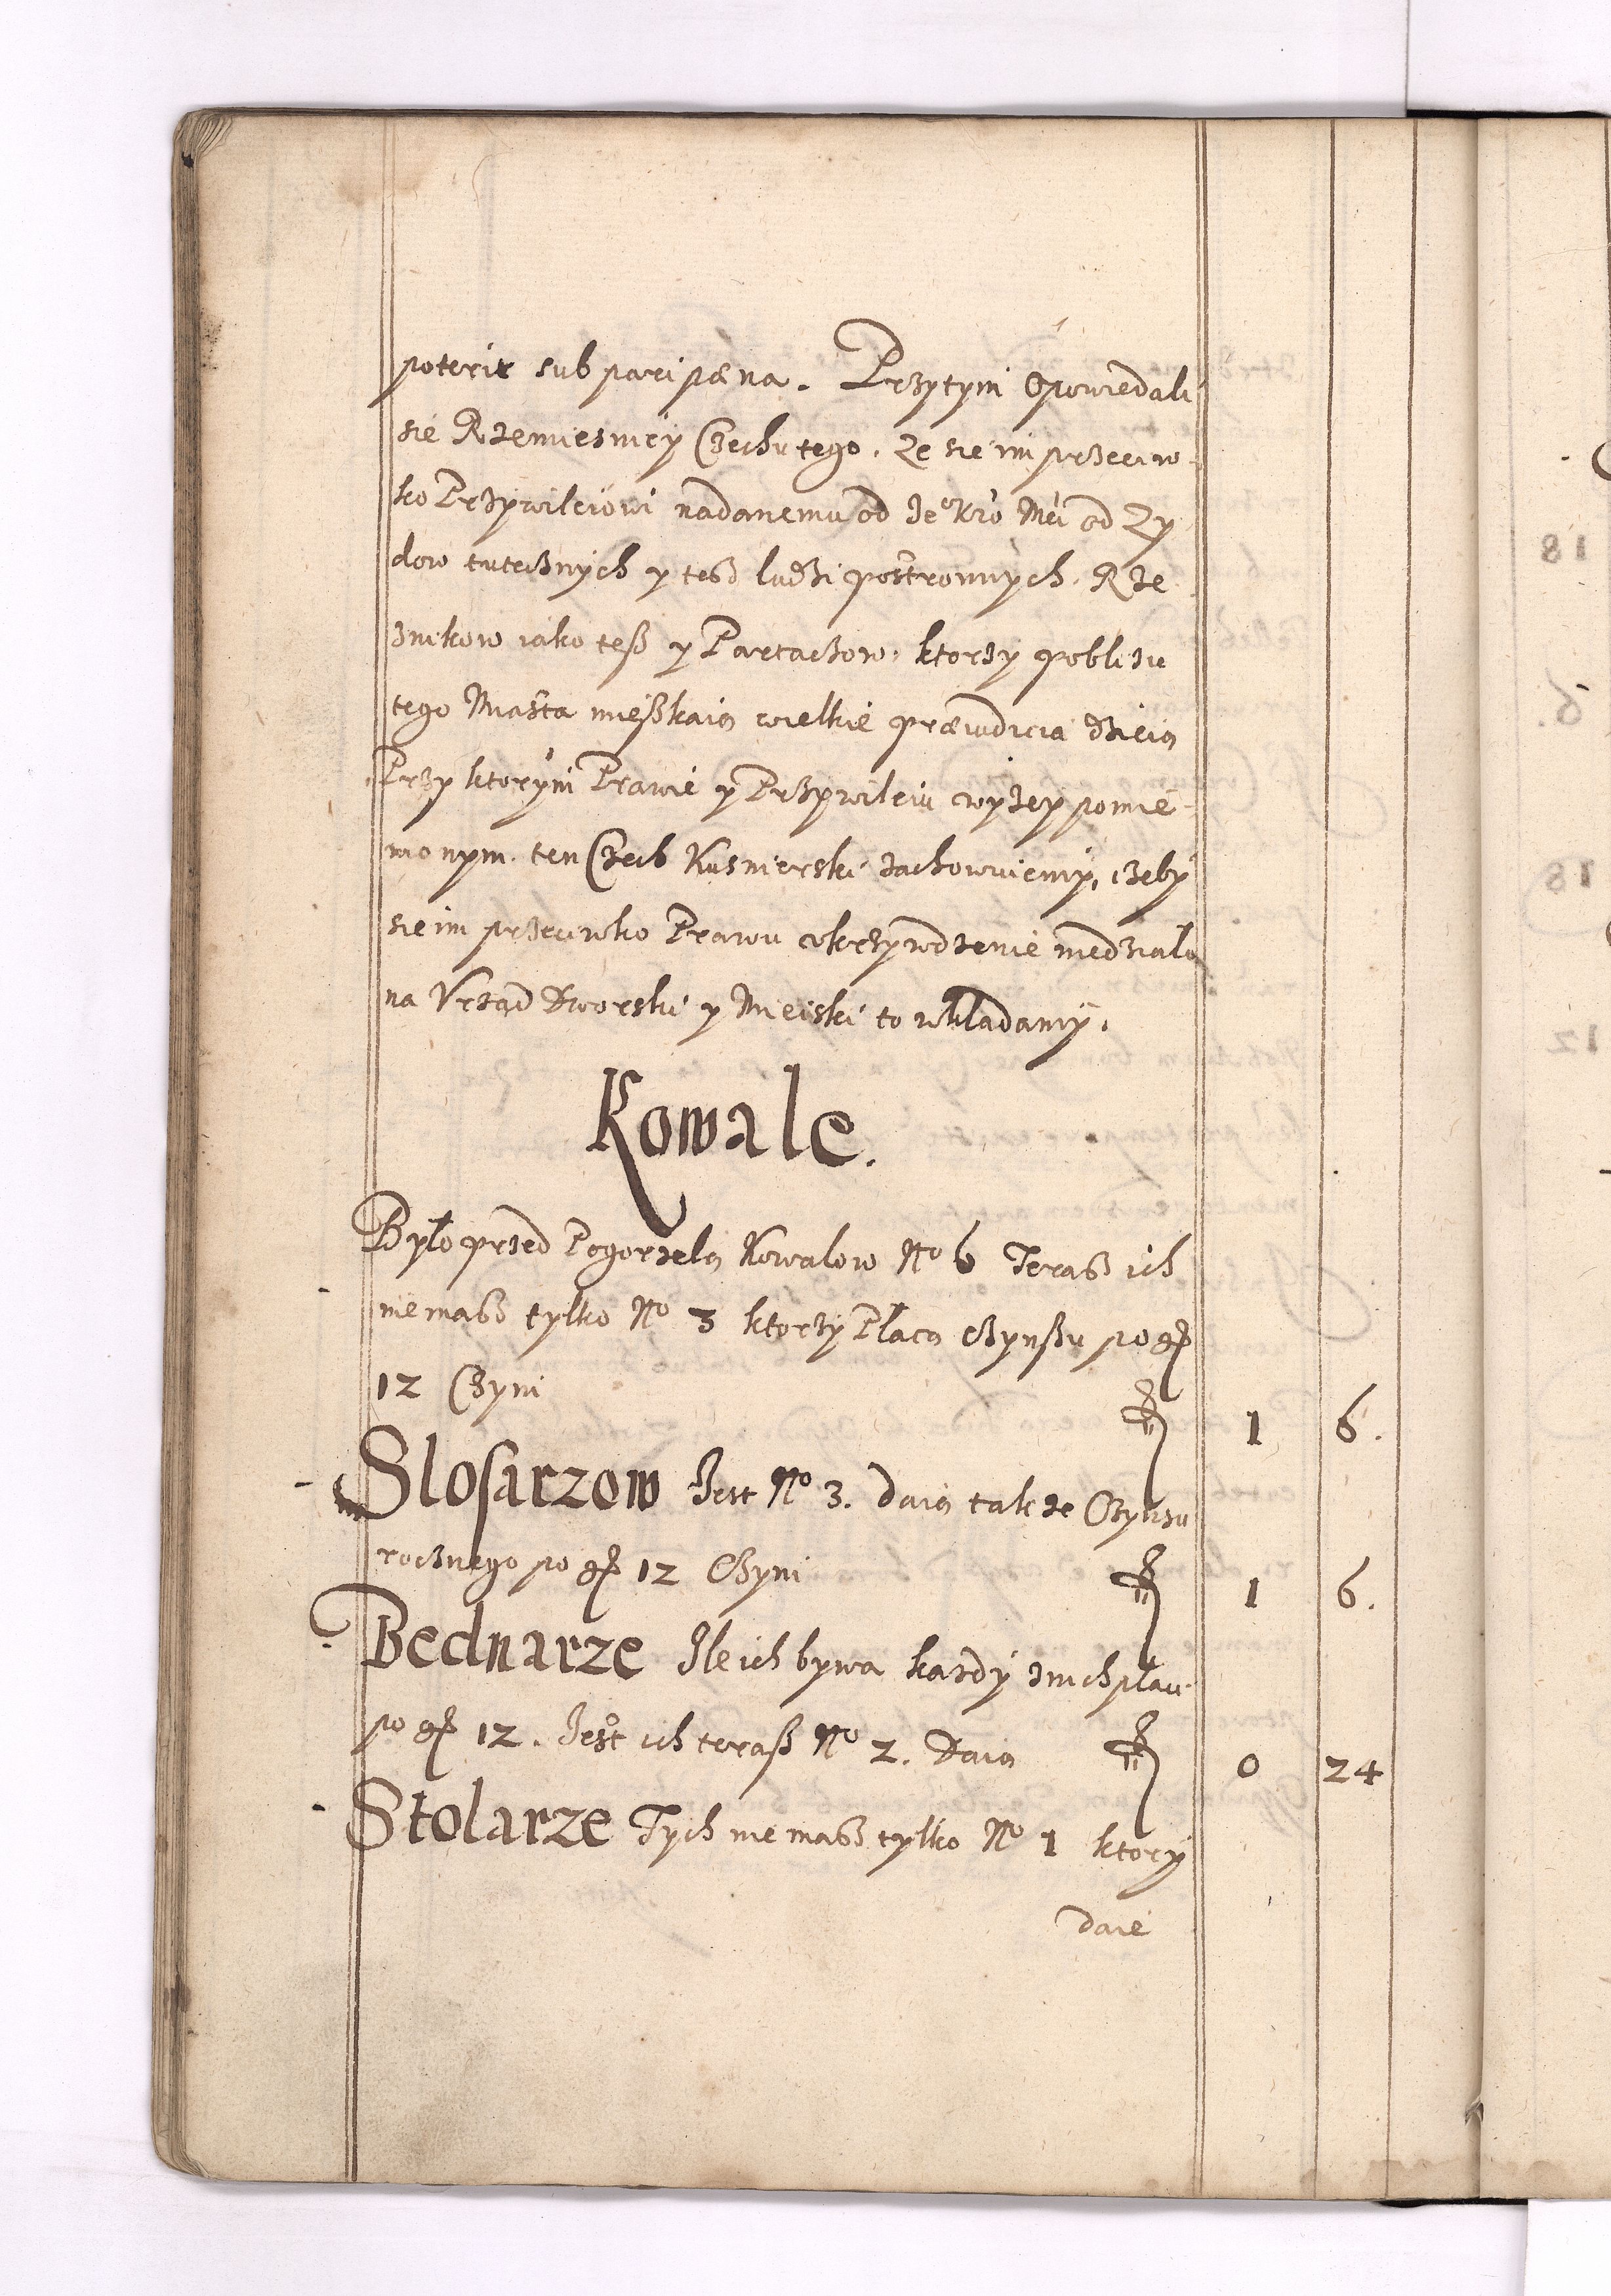 poterit sub pari pæna. Przytym Opowiedali
sie Rzemiesnicy Czechu tego, Ze sie im przeciw-
ko Przywileiowi nadanemu od Je° Kró Mći od Zy
dow tutecznych y tesz ludzi postronnych, Rze
znikow iako teß y Partaczow, ktorzy poblizu
tego Miasta mießkaią wielkie præiudicia dzieią
Przy ktorym Prawie y Przywileiu wyzey pomie-
nionym, ten Czech Kusnierski zachowuiemy, zeby
sie im przeciwko Prawu vkrzywdzenie niedzialo
na Vrząd Dworski y Mieiski to wkladamy.
Kowale.
Bylo przed Pogorzelą Kowalow No 6 Terasz ich
niemasz tylko No 3 ktorzy Płacą Czynßu po gr
12 Czyni 1 6.
Slosarzow Jest No 3. daią takze Czynszu
rocznego po gr 12 Czyni 1 6.
Bednarze Ile ich bywa kazdy znich płaci
po gr 12. Jest ich teraß No 2. Daią 0 24
Stolarze Tych niemasz tylko No 1 ktory
daie